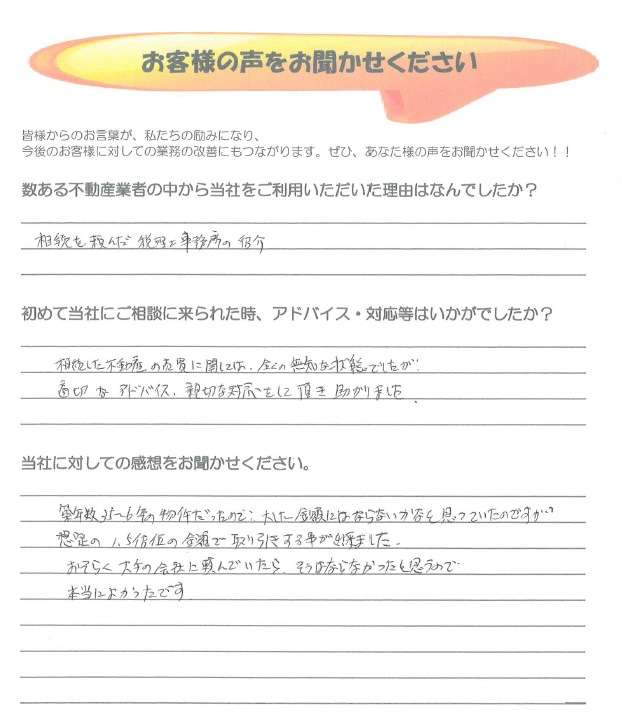 お客様の声をお聞かせください
皆様からのお言葉が、私たちの励みになり、
今後のお客様に対しての業務の改善にもつながります。ぜひ、あなた様の声をお聞かせください！！
数ある不動産業者の中から当社をご利用いただいた理由はなんでしたか？
相続を頼んだ税理士事務所の紹介
初めて当社にご相談に来られた時、アドバイス・対応等はいかがでしたか？
相続した不動産の売買に関しては、全くの無知な状態でしたが、
適切なアドバイス、親切な対応をして頂き助かりました。
当社に対しての感想をお聞かせください。
築年数35〜6年の物件だったので、大した金額にはならないかなと思っていたのですが
想定の1.5倍位の金額で取り引きする事が出来ました。
おそらく大手の会社に頼んでいたら、そうはならなかったと思うので
本当によかったです